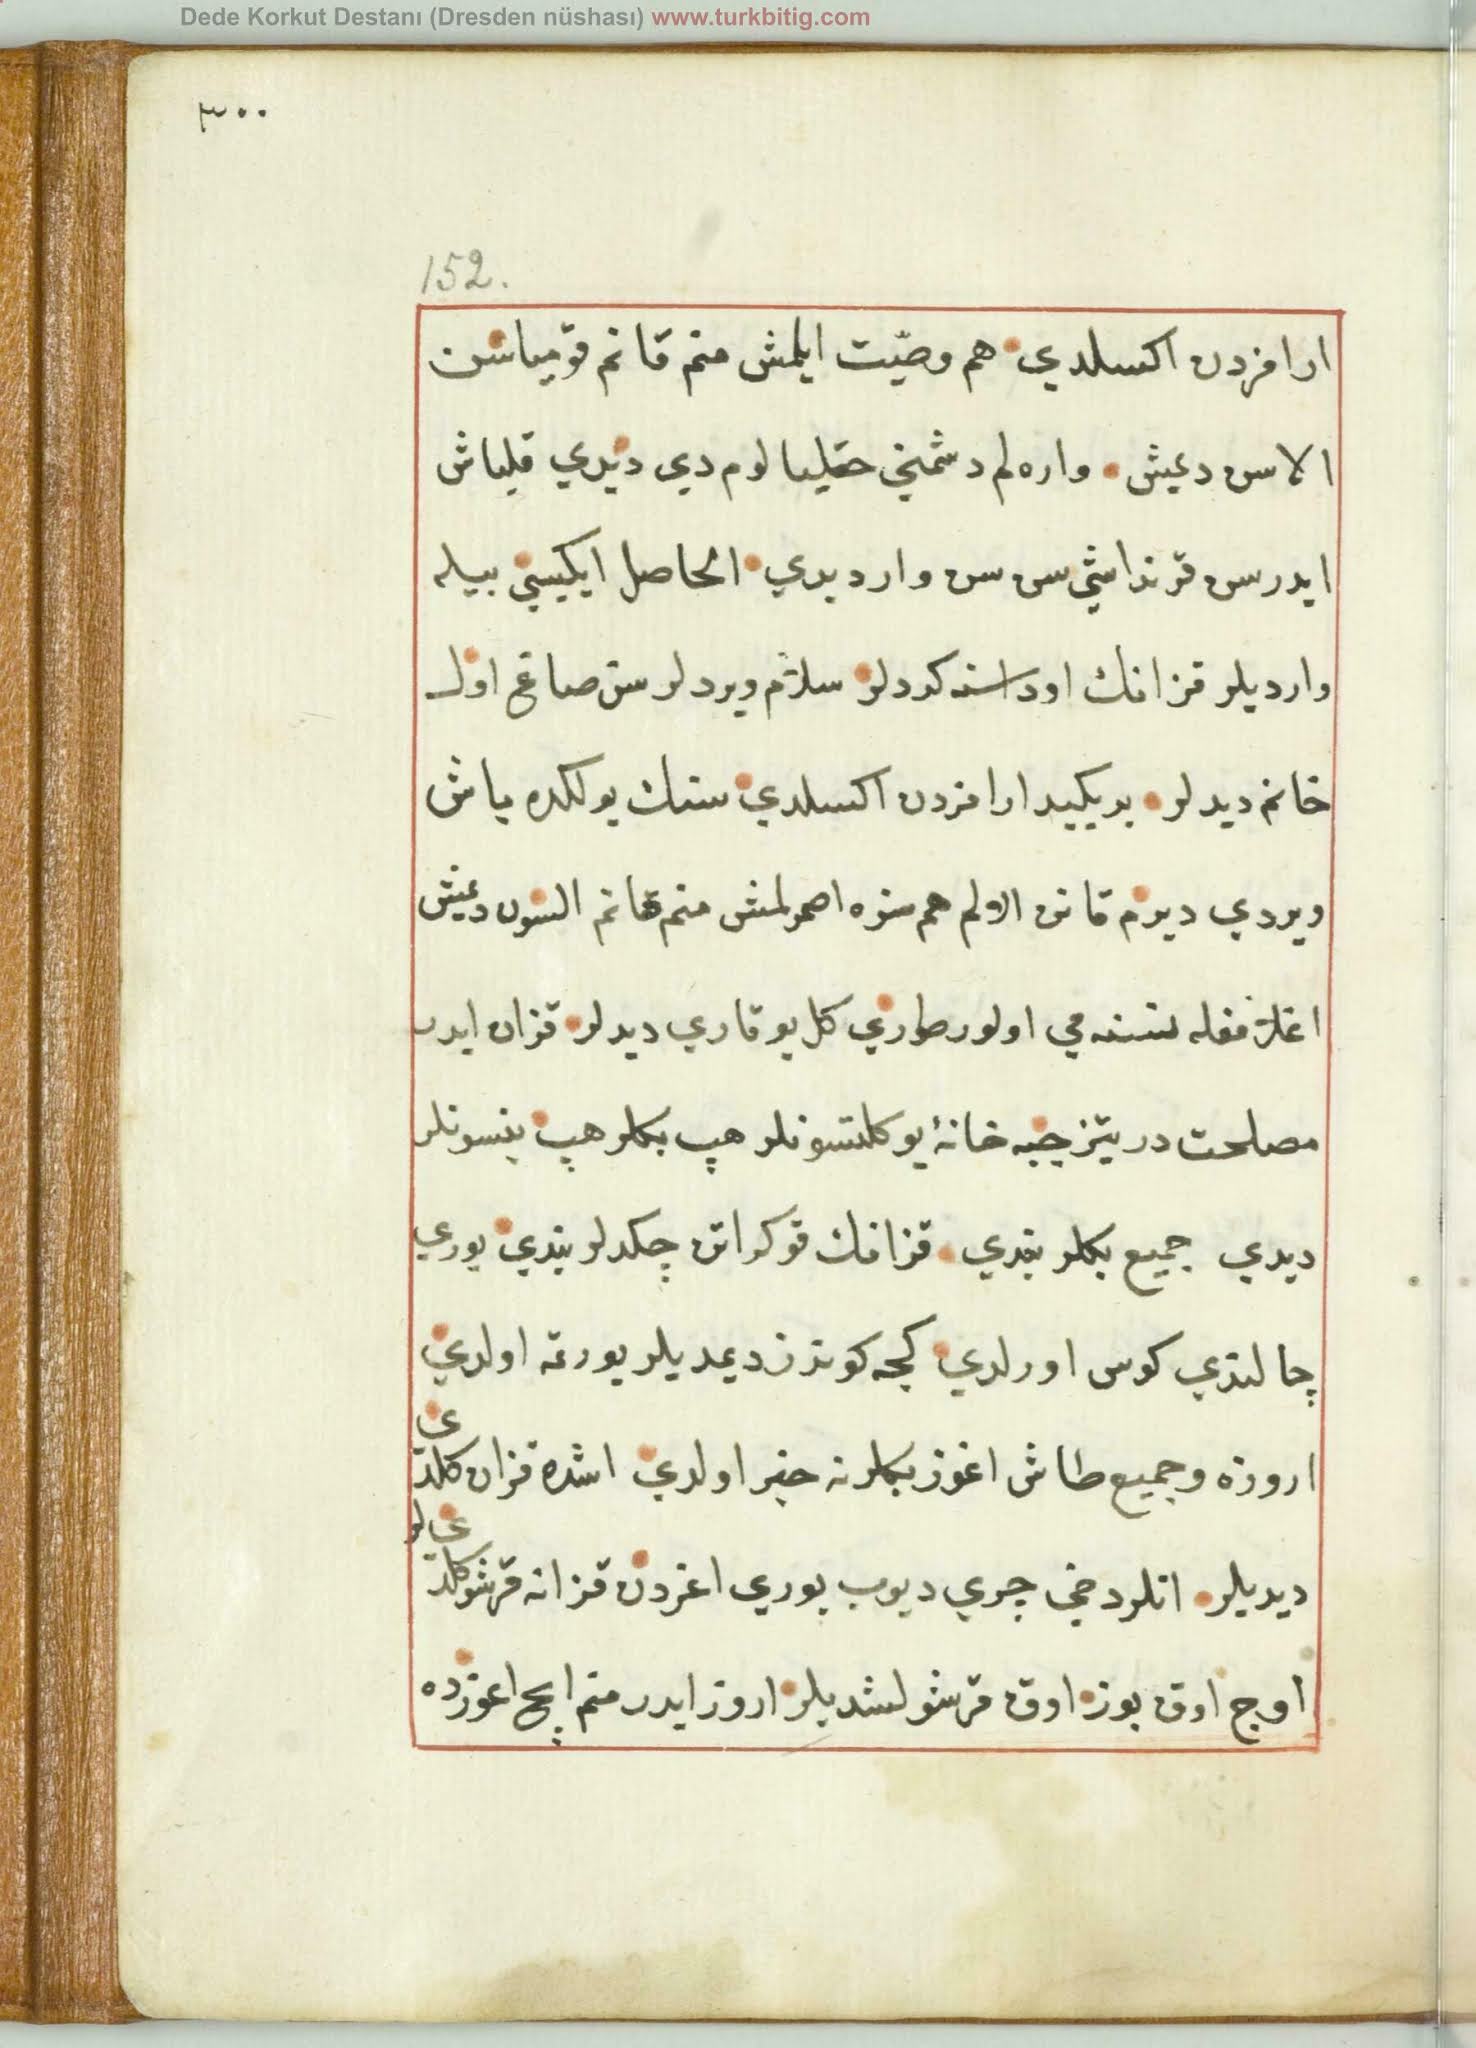 Dede Korkut Destanı (Dresden nüshası) www.turkbitig.com
٣٠٠
152.
ارامزدن اكسلدي هم وصيّت ايلمش منم قانم قوميا سن
الاسن دیمش واره لم دشمني حقليالوم دي ديدي قلباش
ايدر سن قرنداشي سن سن وار ديدي الحاصل ايكيسي بيله
وارديلر قزانك اوداسنه كردلر سلام ويردلر سن صاغ اول
خانم ديدلر بو يكيد ارامزدن اكسلدي سنك يولكده باش
ويردي ديرم قانن الالم هم سزه اصمرلمش منم قانم السون دیمش
اغلامغله نسنه مي اولور طوري كل يوقاري ديدلر قزان ايدر
مصلحت در تيز جبه خانۀ يوكلتسونلر هپ بكلر هپ بنسونلر
ديدي جميع بكلر بندي قزانك قوكر اتن چكدلر بندي بوري
چالندي كوس اورلدي كيجه كوندز ديمديلر يورتمه اولدي
اروزه و جميع طاش اغوز بكلرنه خبر اولدي اشده قزان كلدي
ديديلر انلر دخي چري ديوب بوري اغردن قزانه قرشو كلديلر
اوچ اوق بوز اوق قرشولشديلر اروز ايدر منم ايچ اغوزده